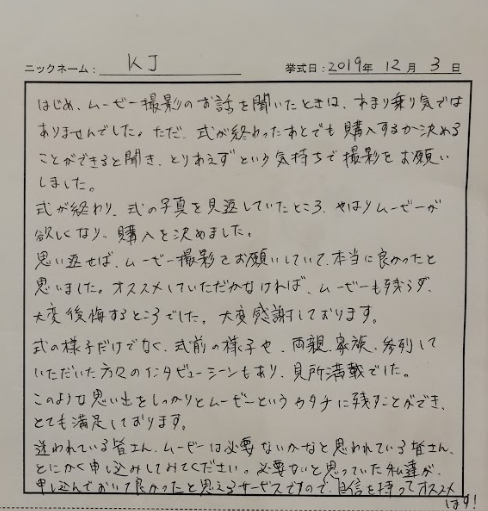 ニックネーム: KJ 挙式日: 2019年 12月 3日
はじめ、ムービー撮影のお話を聞いたときは、あまり乗り気では
ありませんでした。ただ、式が終わったあとでも購入するか決める
ことができると聞き、とりあえずという気持ちで撮影をお願い
しました。
式が終わり、式の写真を見返していたところ、やはりムービーが
欲しくなり、購入を決めました。
思い返せば、ムービー撮影をお願いしていて、本当に良かったと
思いました。オススメしていただかなければ、ムービーも残らず、
大変後悔するところでした。大変感謝しております。
式の様子だけでなく、式前の様子や、両親、家族、参列して
いただいた方々のインタビューシーンもあり、見所満載でした。
このような思い出をしっかりとムービーというカタチに残すことができ、
とても満足しております。
迷われている皆さん、ムービーは必要ないかなと思われている皆さん、
とにかく申し込みしてみてください。必要ないと思っていた私達が、
申し込んでおいて良かったと思えるサービスですので、自信を持ってオススメ
します!